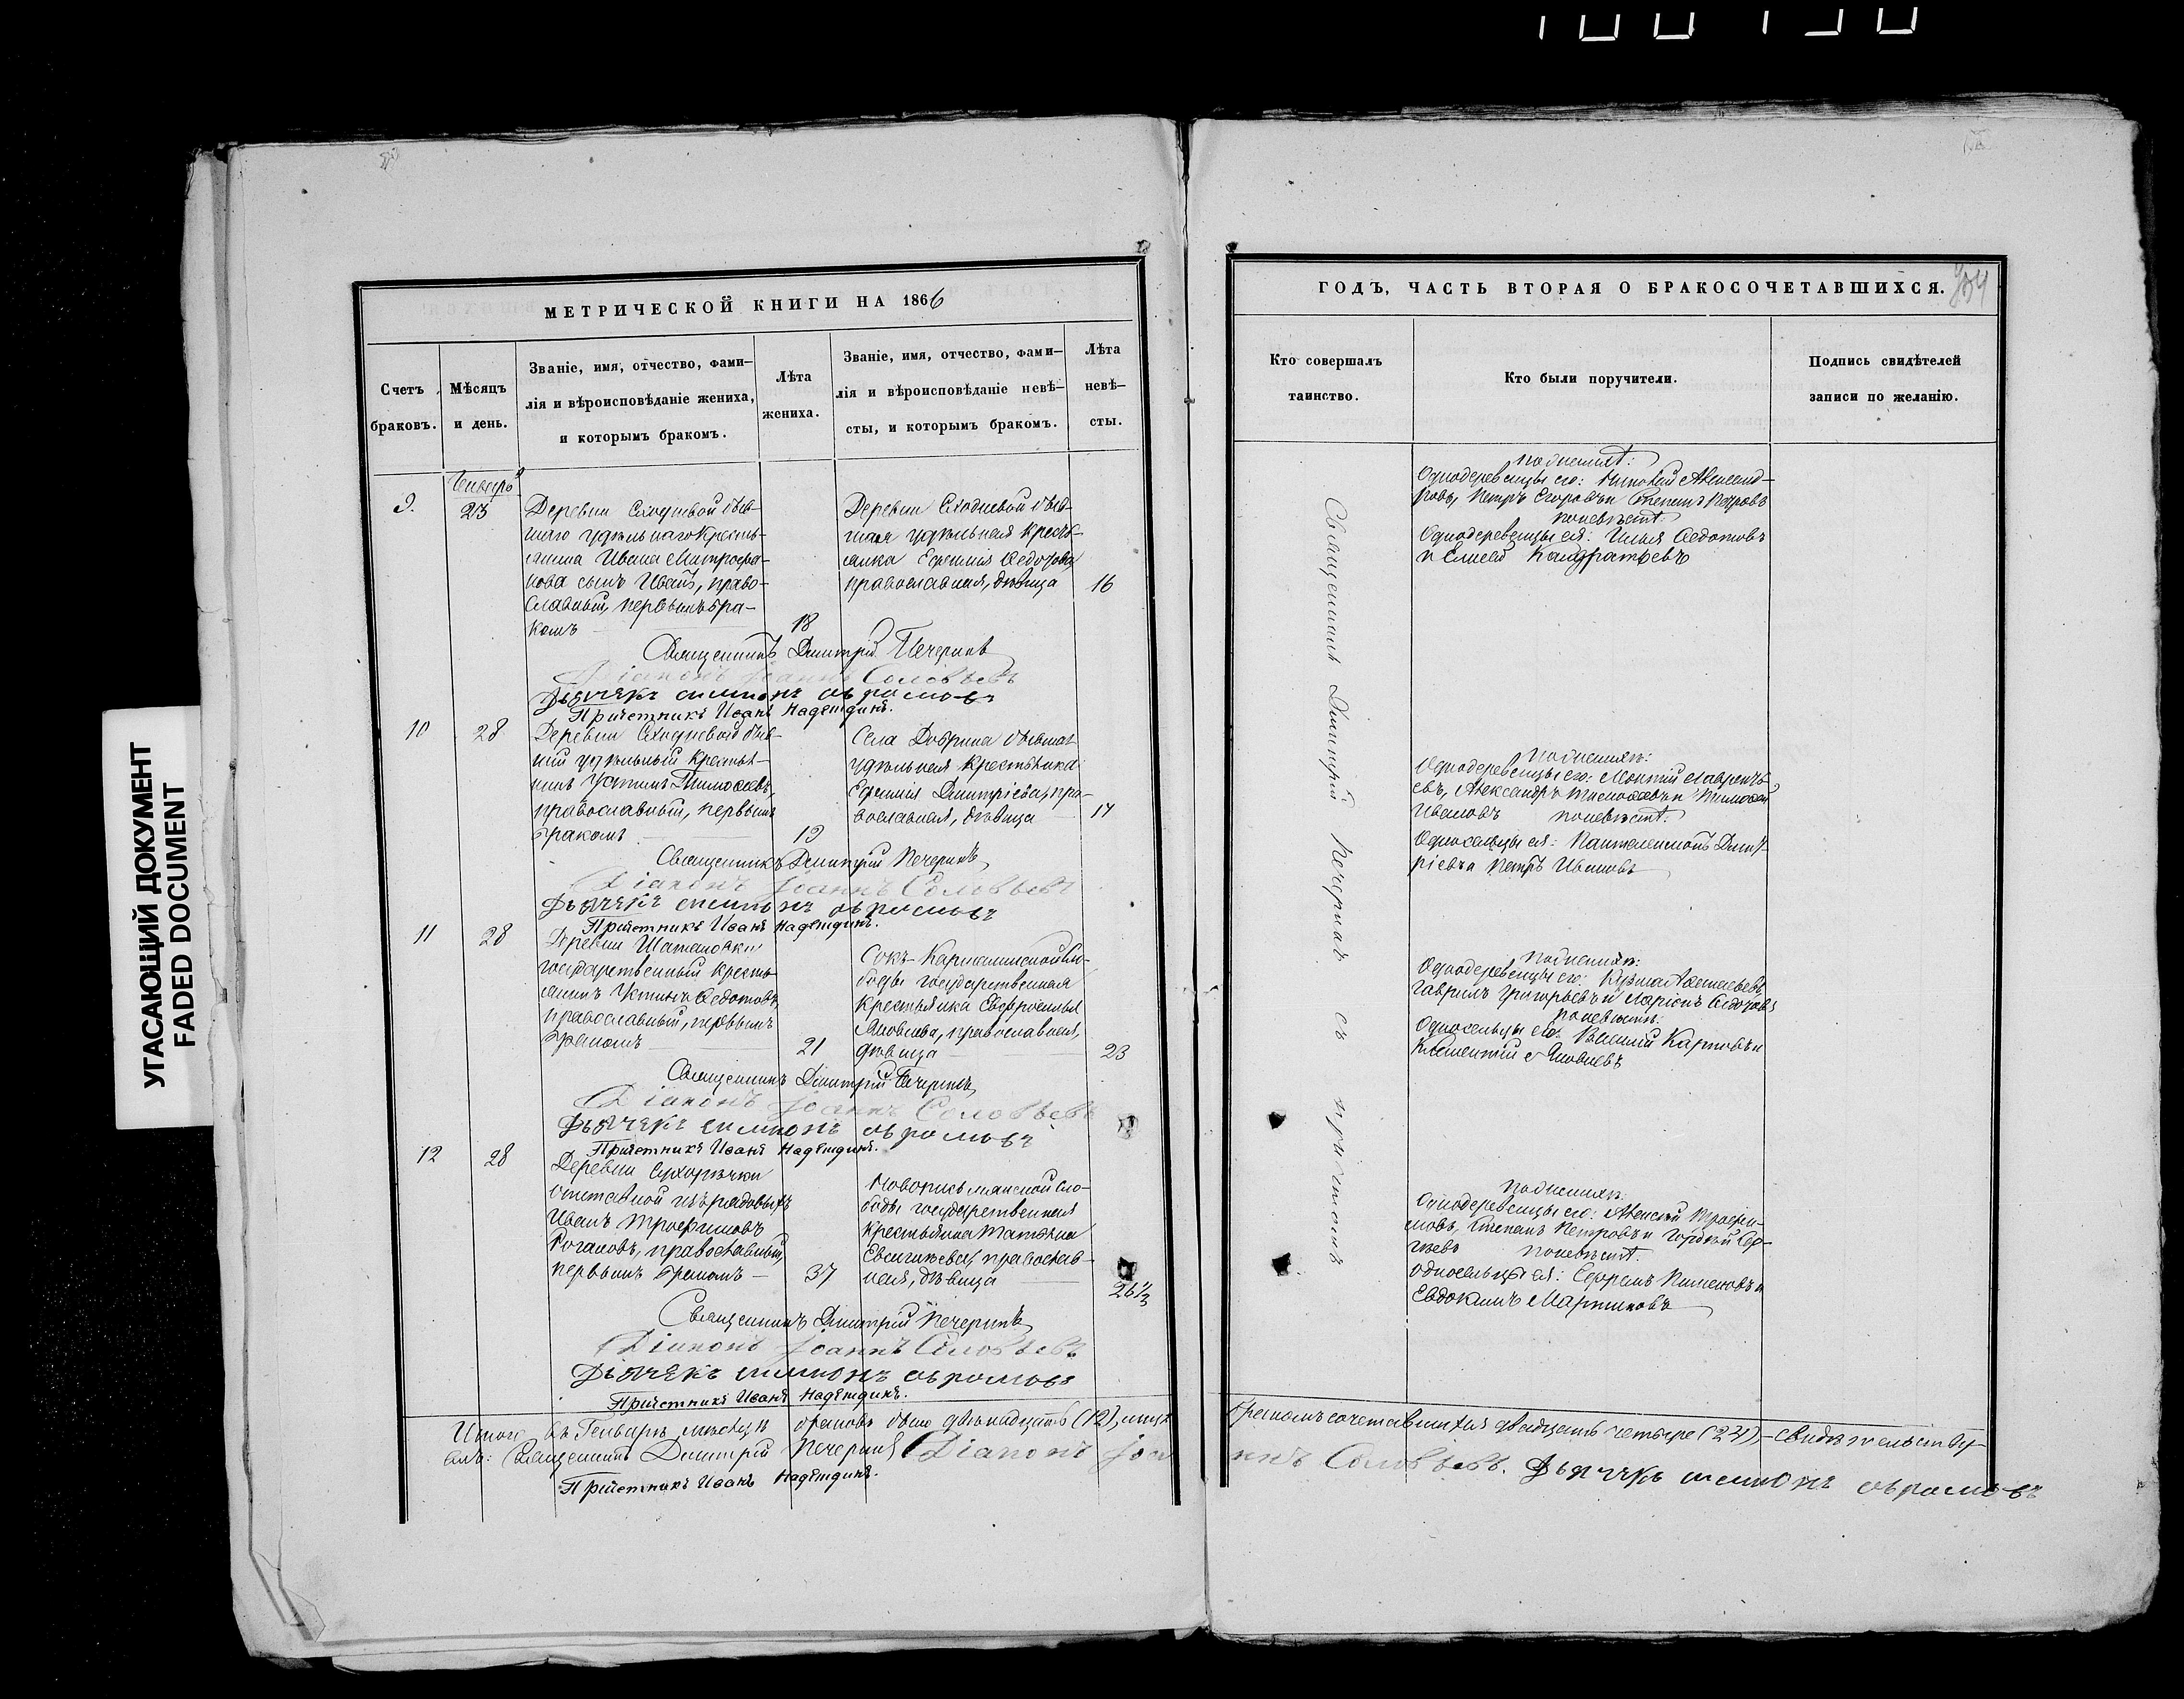 УГАСАЮЩИЙ ДОКУМЕНТ
FADED DOCUMENT
МЕТРИЧЕСКОЙ КНИГИ НА 1866
Счетъ браковъ.
Мѣсяцъ и день.
Званіе, имя, отчество, фами-
лія и вѣроисповѣданіе жениха,
и которымъ бракомъ.
Лѣта
жениха.
Званіе, имя, отчество, фами-
лія и вѣроисповѣданіе невѣ-
сты, и которымъ бракомъ.
Лѣта
невѣ-
сты.
9.
25
Деревни
шаго удѣльнаго кресть-
янина Ивана Митрофа-
нова сынъ Иванъ, право-
славный, первымъ бра-
комъ
18
Деревни
шая удѣльная кресть-
янка Ефимія Ѳедотова
православная, дѣвица
16
Священникъ Димитрій Печеринъ
Діаконъ Іоаннъ Соловьевъ
Дьячекъ
Причетникъ Иванъ Надеждинъ.
10
28
Деревни
шій удѣльный кресть-
нинъ Устинъ Тимоѳеевъ,
православный, первымъ
бракомъ
19
Села Добрина бывшая
удѣльная крестьянка
Ефимія Димитріева, пра-
вославная, дѣвица
17
Священникъ Димитрій Печеринъ
Діаконъ Іоаннъ Соловьевъ
Дьячекъ
Причетникъ Иванъ Надеждинъ.
11
28
Деревни
государственный кресть-
янинъ Устинъ Ѳедотовъ,
православный, первымъ
бракомъ
21
Сокъ-Кармалинской сло-
боды государственная
крестьянка Евфросинья
Яковлева, православная,
дѣвица
23
Священникъ Димитрій Печеринъ
Діаконъ Іоаннъ Соловьевъ
Дьячекъ
Причетникъ Иванъ Надеждинъ.
12
28
Деревни Сухорѣчки
отставной изъ рядовыхъ
Иванъ Трофимовъ
Рогановъ, православный,
первымъ бракомъ
37
сло-
боды государственная
крестьянка Татьяна
православ-
ная, дѣвица
26⅓
Священникъ Димитрій Печеринъ
Діаконъ Іоаннъ Соловьевъ
Дьячекъ
Причетникъ Иванъ Надеждинъ.
Итого въ Генварѣ мѣсяцѣ браковъ было двѣнадцать (12),
Священникъ Димитрій Печеринъ Діаконъ Іоа
Причетникъ Иванъ Надеждинъ.
ГОДЪ, ЧАСТЬ ВТОРАЯ О БРАКОСОЧЕТАВШИХСЯ.
Кто совершалъ
таинство.
Кто были поручители.
Подпись свидѣтелей
записи по желанію.
Священникъ Димитрій Печеринъ съ причтомъ
Однодеревенцы его:
Петръ Егоровъ и Степанъ Петровъ
по невѣстѣ:
Однодеревенцы ея: Илья Ѳедотовъ
и Елисей Кандратьевъ
по женихѣ:
Однодеревенцы его: Леонтій Лаврентъ-
евъ, Александръ Тимоѳеевъ и Тимоѳей
Ивановъ по невѣстѣ:
Односельцы ея: Пантелеимонъ Дмит-
ріевъ и Петръ Ивановъ
по женихѣ:
Однодеревенцы его: Кузма
Гаврилъ Григорьевъ и Ларіонъ Ѳедотовъ
по невѣстѣ:
Односельцы ея: Василій Карповъ и
Климентій Яковлевъ
по женихѣ:
Однодеревенцы его: Алексѣй Трофи-
мовъ, Степанъ Петровъ и Гордѣй Сер-
гѣевъ по невѣстѣ:
Односельцы ея: Ефремъ Пименовъ и
Евдокимъ Мартиновъ
бракомъ сочетавшихся двадцать четыре (24),—свидѣтельству-
ннъ Соловьевъ. Дьячекъ